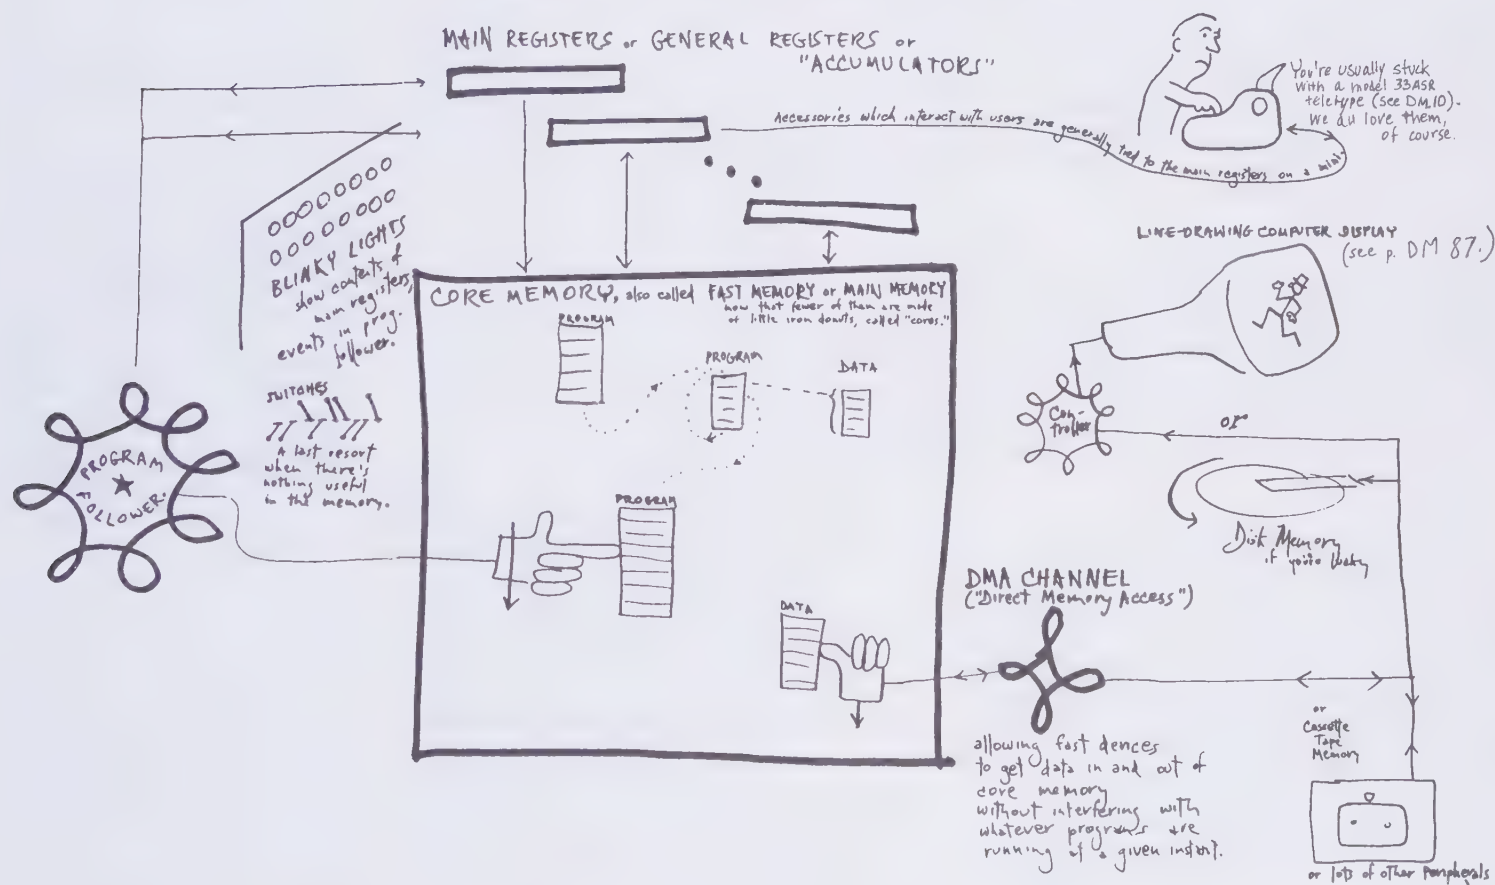 MAIN REGISTERS or GENERAL REGISTERS or
"ACCUMULATORS"
Accessories which interact with users are generally tied to the main registers on a mini.
You're usually stuck
with a model 33ASR
teletype (see DM.10).
We du love them,
of course.
BLINKY LIGHTS
show contents of
main registers,
events in prog.
follower.
SWITCHES
A last resort
when there's
nothing useful
in the memory.
PROGRAM
FOLLOWER.
CORE MEMORY, also called FAST MEMORY or MAIN MEMORY
now that fewer of them are made
of little iron donuts, called "cores."
PROGRAM
PROGRAM
DATA
PROGRAM
DATA
LINE-DRAWING COMPUTER DISPLAY
(see p. DM 87.)
Con-
troller
or
Disk Memory
if you're lucky
DMA CHANNEL
("Direct Memory Access")
allowing fast devices
to get data in and out of
core memory
without interfering with
whatever programs are
running at a given instant.
or
Cassette
Tape
Memory
or lots of other Peripherals